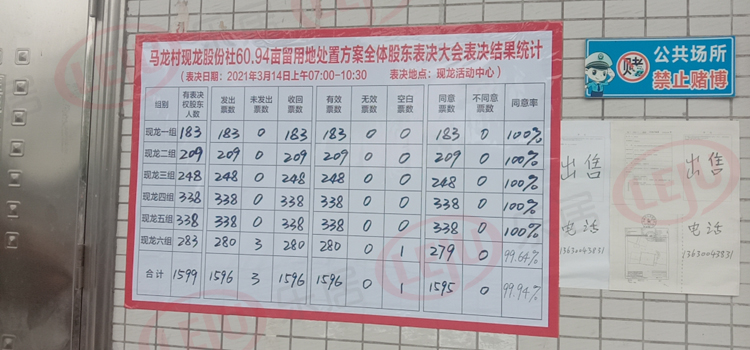 马龙村现龙股份社60.94亩留用地处置方案全体股东表决大会表决结果统计
(表决日期:2021年3月14日上午07:00-10:30) (表决地点:现龙活动中心)
组别 有表决权股东人数 发出票数 未发出票数 收回票数 有效票数 无效票数 空白票数 同意票数 不同意票数 同意率
现龙一组 183 183 0 183 183 0 0 183 0 100%
现龙二组 209 209 0 209 209 0 0 209 0 100%
现龙三组 248 248 0 248 248 0 0 248 0 100%
现龙四组 338 338 0 338 338 0 0 338 0 100%
现龙五组 338 338 0 338 338 0 0 338 0 100%
现龙六组 283 280 3 280 280 0 1 279 0 99.64%
合计 1599 1596 3 1596 1596 0 1 1595 0 99.94%
赌
公共场所
禁止赌博
出售
电话
13630043831
出售
电话
13630043831
LEJU
LEJU 乐居
LEJU